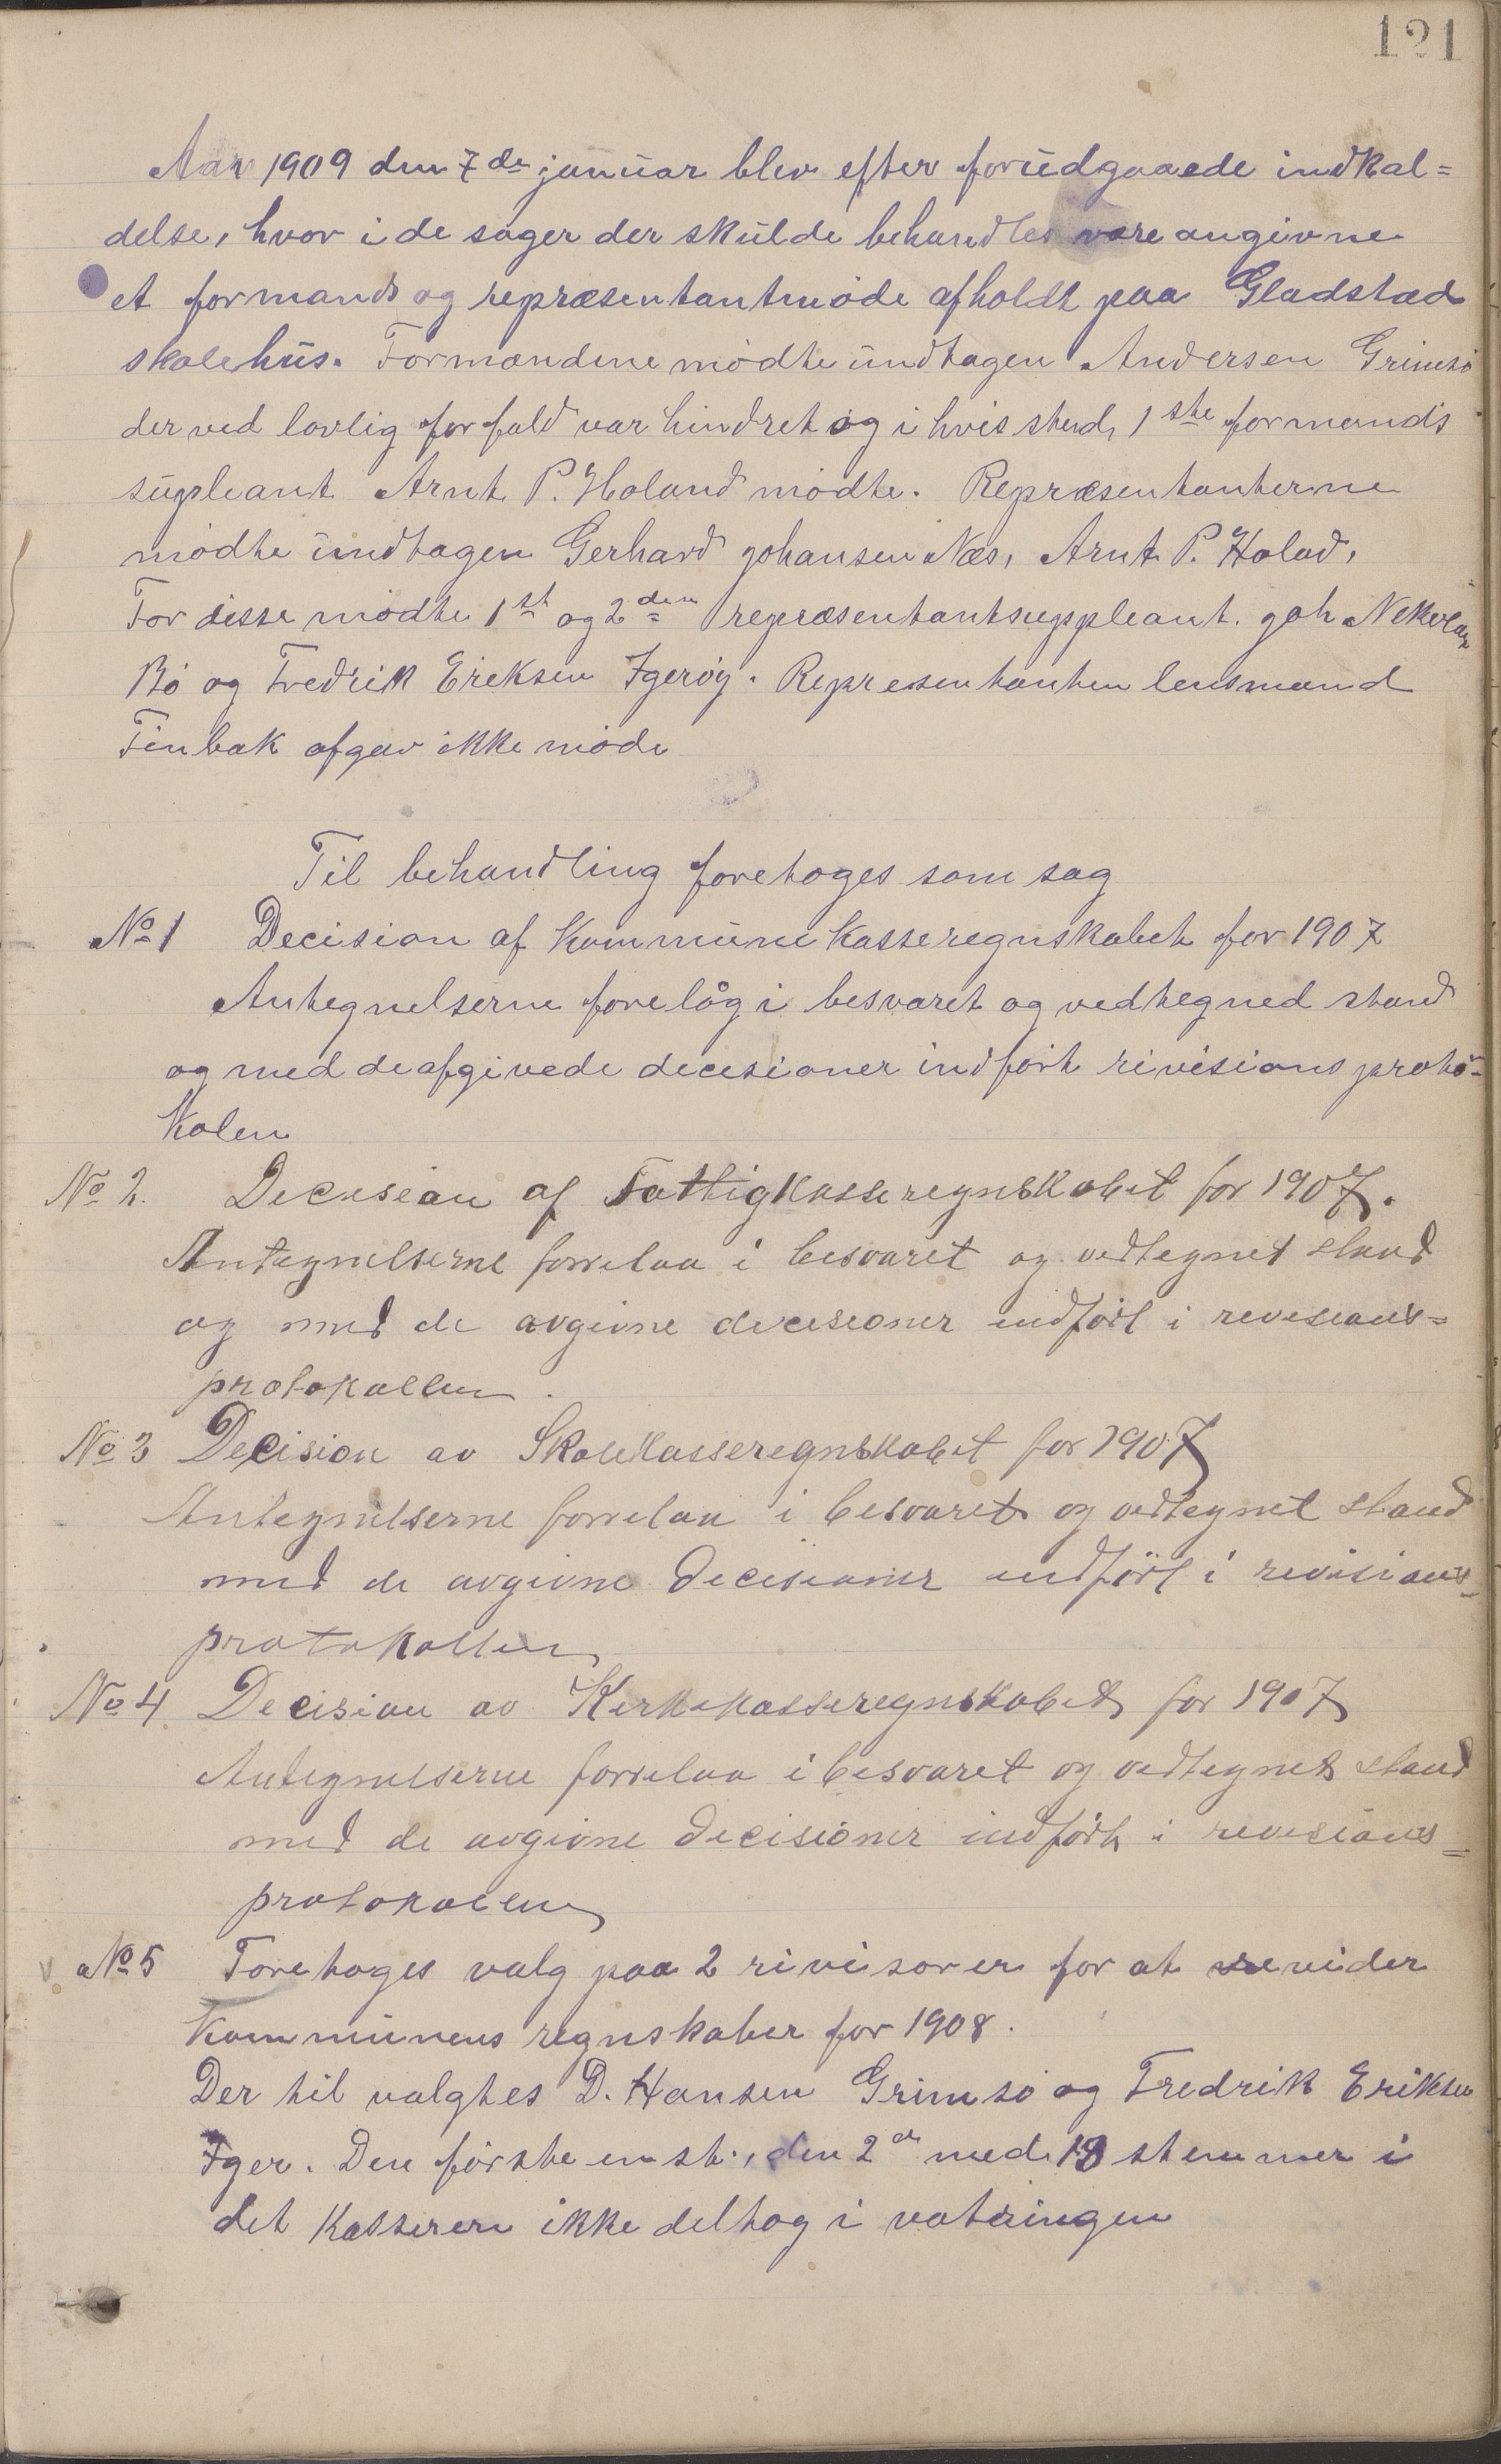 121
Aar 1909 den 7de januar blev efter forudgaaede indkal=
delse, hvor i de sager der skulde behandles vare angivne
et formands og repræsentantmøde afholdt paa Gladstad
skolehus. Formændene mødte undtagen Andersen Grimsø
der ved lovlig forfald var hindret og i hvis sted, 1ste formands
supleant Arnt P. Holand mødte. Repræsentanterne
mødte undtagen Gerhard Johansen Næs, Arnt P. Holad,
For disse mødte 1st og 2den repræsentantsuppleant. Joh
Bø og Fredrik Eriksen Igerøy. Representanten lensmand
Finbak afgav ikke møde
Til behandling foretoges som sag
No 1 Decision af Kommunekasseregnskabet for 1907
Antegnelserne forelåg i besvaret og vedtegned stand
og med de afgivede decesioner indført rivisions proto-
kolen
No 2. Decision af Fattigkasseregnskabet for 1907.
Antegnelserne forrelaa i besvaret og vedtegnet stand
og med de avgivne decesioner indført i revesions=
protokollen.
No 3 Decision av Skolekasseregnskabet for 1907
Antegnelserne forrelaa i besvaret og vedtegnet stand
med de avgivne Decisioner indført i revisions=
protokollen
No 4 Decision av Kirkekasseregnskabet for 1907
Antegnelserne forrelaa i besvaret og vedtegnet stand
med de avgivne Decisioner indført i revesions=
protokollen
No 5 Foretoges valg paa 2 rivisorer for at revider
Kommunens regnskaber for 1908.
Der til valgtes D. Hansen Grimsø og Fredrik Eriksen
Iger. Den første enst., den 2de med 13 stemmer i
det Kassereren ikke deltog i voteringen